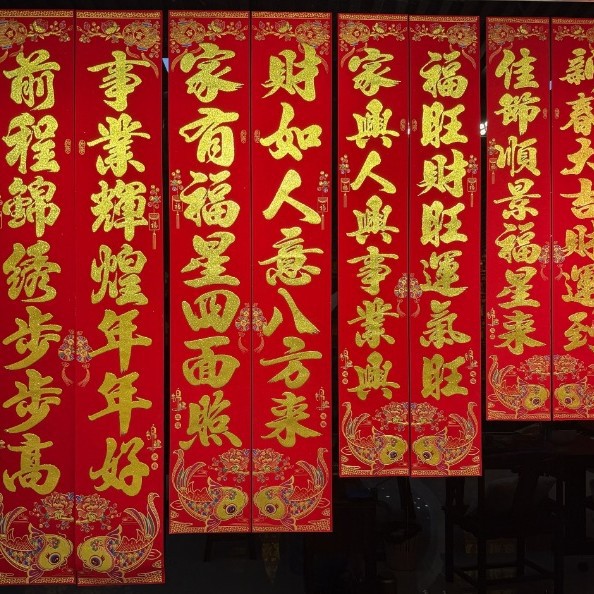 新春大吉財運到
佳節順景福星来
福旺財旺運氣旺
家興人興事業興
財如人意八方来
家有福星四面照
事業輝煌年年好
前程錦綉步步高